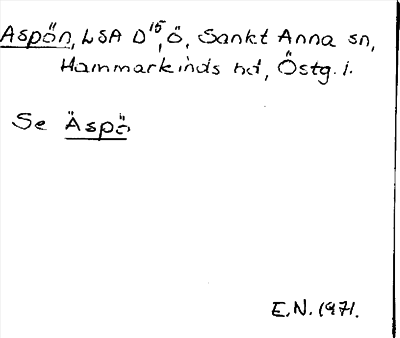 Aspön, LSA D 15, Ö, Sankt Anna sn,
Hammarkinds hd, Östg. l.
Se Äspö
E.N. 1971.